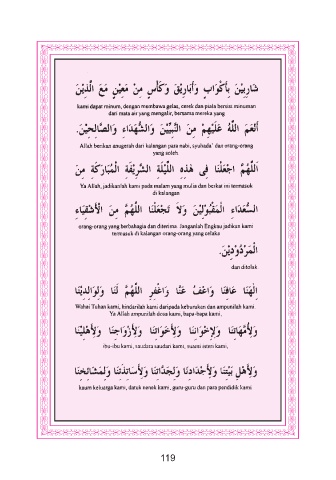 شَارِبِيْنَ بِأَكْوَابٍ وَأَبَارِيْقَ وَكَأْسٍ مِنْ مَعِيْنٍ مَعَ الَّذِيْنَ
kami dapat minum, dengan membawa gelas, cerek dan piala berisi minuman
dari mata air yang mengalir, bersama mereka yang
أَنْعَمَ اللَّهُ عَلَيْهِمْ مِنَ النَّبِيِّيْنَ وَالشُّهَدَاءِ وَالصَّالِحِيْنَ.
Allah berikan anugerah dari kalangan para nabi, syuhada' dan orang-orang
yang soleh.
اَللَّهُمَّ اجْعَلْنَا فِى هَذِهِ اللَّيْلَةِ الشَّرِيْفَةِ الْمُبَارَكَةِ مِنَ
Ya Allah, jadikanlah kami pada malam yang mulia dan berkat ini termasuk
di kalangan
السُّعَدَاءِ الْمَقْبُوْلِيْنَ وَلاَ تَجْعَلْنَا اللَّهُمَّ مِنَ الْأَشْقِيَاءِ
orang-orang yang berbahagia dan diterima. Janganlah Engkau jadikan kami
termasuk di kalangan orang-orang yang celaka
الْمَرْدُوْدِيْنَ.
dan ditolak
اِلَهَنَا عَافِنَا وَاعْفُ عَنَّا وَاغْفِرِ اللَّهُمَّ لَنَا وَلِوَالِدِيْنَا
Wahai Tuhan kami, hindarilah kami daripada keburukan dan ampunilah kami.
Ya Allah ampunilah dosa kami, bapa-bapa kami,
وَلِأُمَّهَاتِنَا وَلِإِخْوَانِنَا وَلِأَخَوَاتِنَا وَلِأَزْوَاجِنَا وَلِأَهْلِيْنَا
ibu-ibu kami, saudara saudari kami, suami isteri kami,
وَلِأَهْلِ بَيْتِنَا وَلِأَجْدَادِنَا وَلِجَدَّاتِنَا وَلِأَسَاتِذَتِنَا وَلِمَشَائِخِنَا
kaum keluarga kami, datuk nenek kami, guru-guru dan para pendidik kami
119